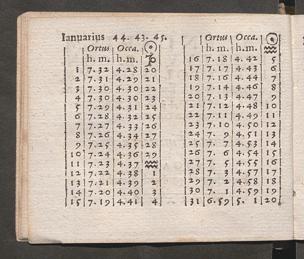 Ianuarius 44. 43. 45.
Ortus Occa. ☉
h. m. h. m. ♑
1 7.32 4.28 20
2 7.31 4.29 21
3 7.30 4.30 22
4 7.30 4.30 23
5 7.29 4.31 24
6 7.28 4.32 25
7 7.27 4.33 26
8 7.26 4.34 27
9 7.25 4.35 28
10 7.24 4.36 29
11 7.23 4.37 ♒
12 7.22 4.38 1
13 7.21 4.39 2
14 7.20 4.40 3
15 7.19 4.41 4
Ortus Occa. ☉
h. m. h. m. ♒
16 7.18 4.42 5
17 7.17 4.43 6
18 7
19 7.14 4.46 8
20 9
21 7.12 4.48 10
22 7.11 4.49 11
23 7.10 4.50 12
24 7. 9 4.51 13
25 7. 7 4.53 14
26 15
27 7. 5 4.55 16
28 7. 3 4.57 17
29 7. 2 4.58 18
30 7. 1 4.59 19
31 6.59 5. 1 20